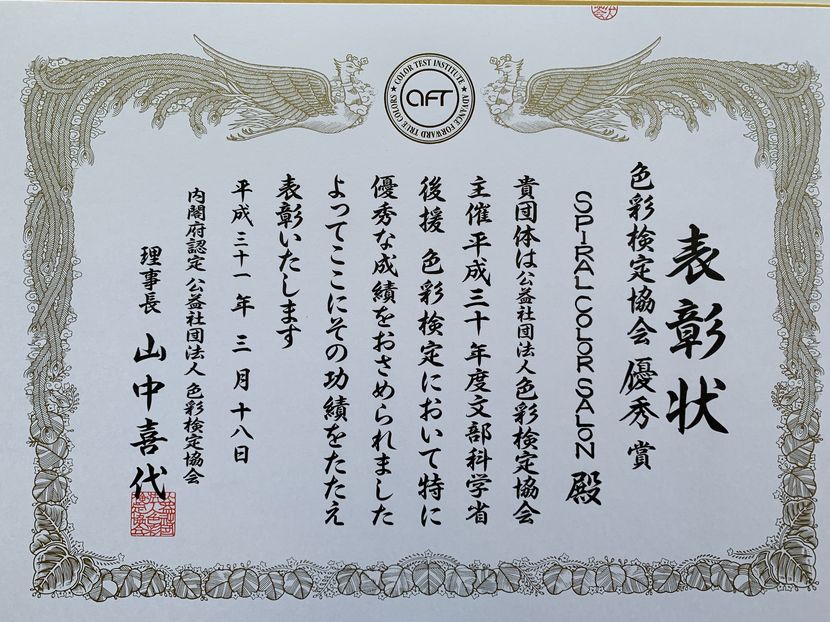 COLOR TEST INSTITUTE
ADVANCE FORWARD TRUE COLORS
aFT
表彰状
色彩検定協会 優秀賞
SPIRAL COLOR SALON 殿
貴団体は公益社団法人色彩検定協会
主催平成三十年度文部科学省
後援 色彩検定において特に
優秀な成績をおさめられました
よってここにその功績をたたえ
表彰いたします
平成三十一年三月十八日
内閣府認定 公益社団法人 色彩検定協会
理事長 山中喜代